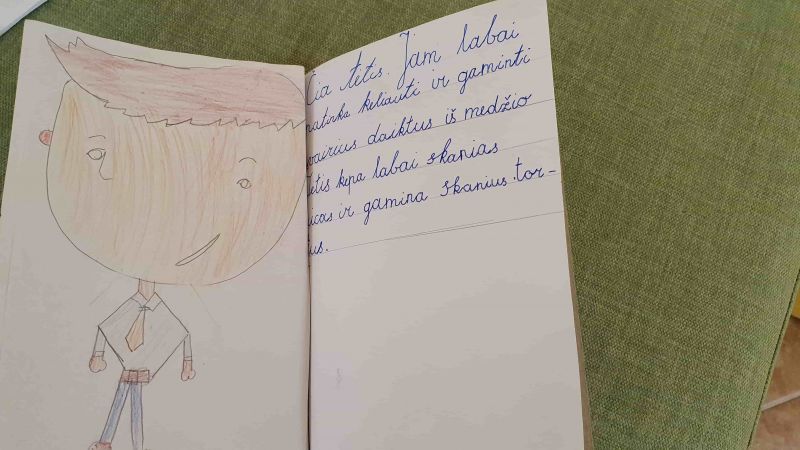 Čia tėtis. Jam labai
patinka keliauti ir gaminti
įvairius daiktus iš medžio
Tėtis kepa labai skanias
picas ir gamina skanius tor-
tus.